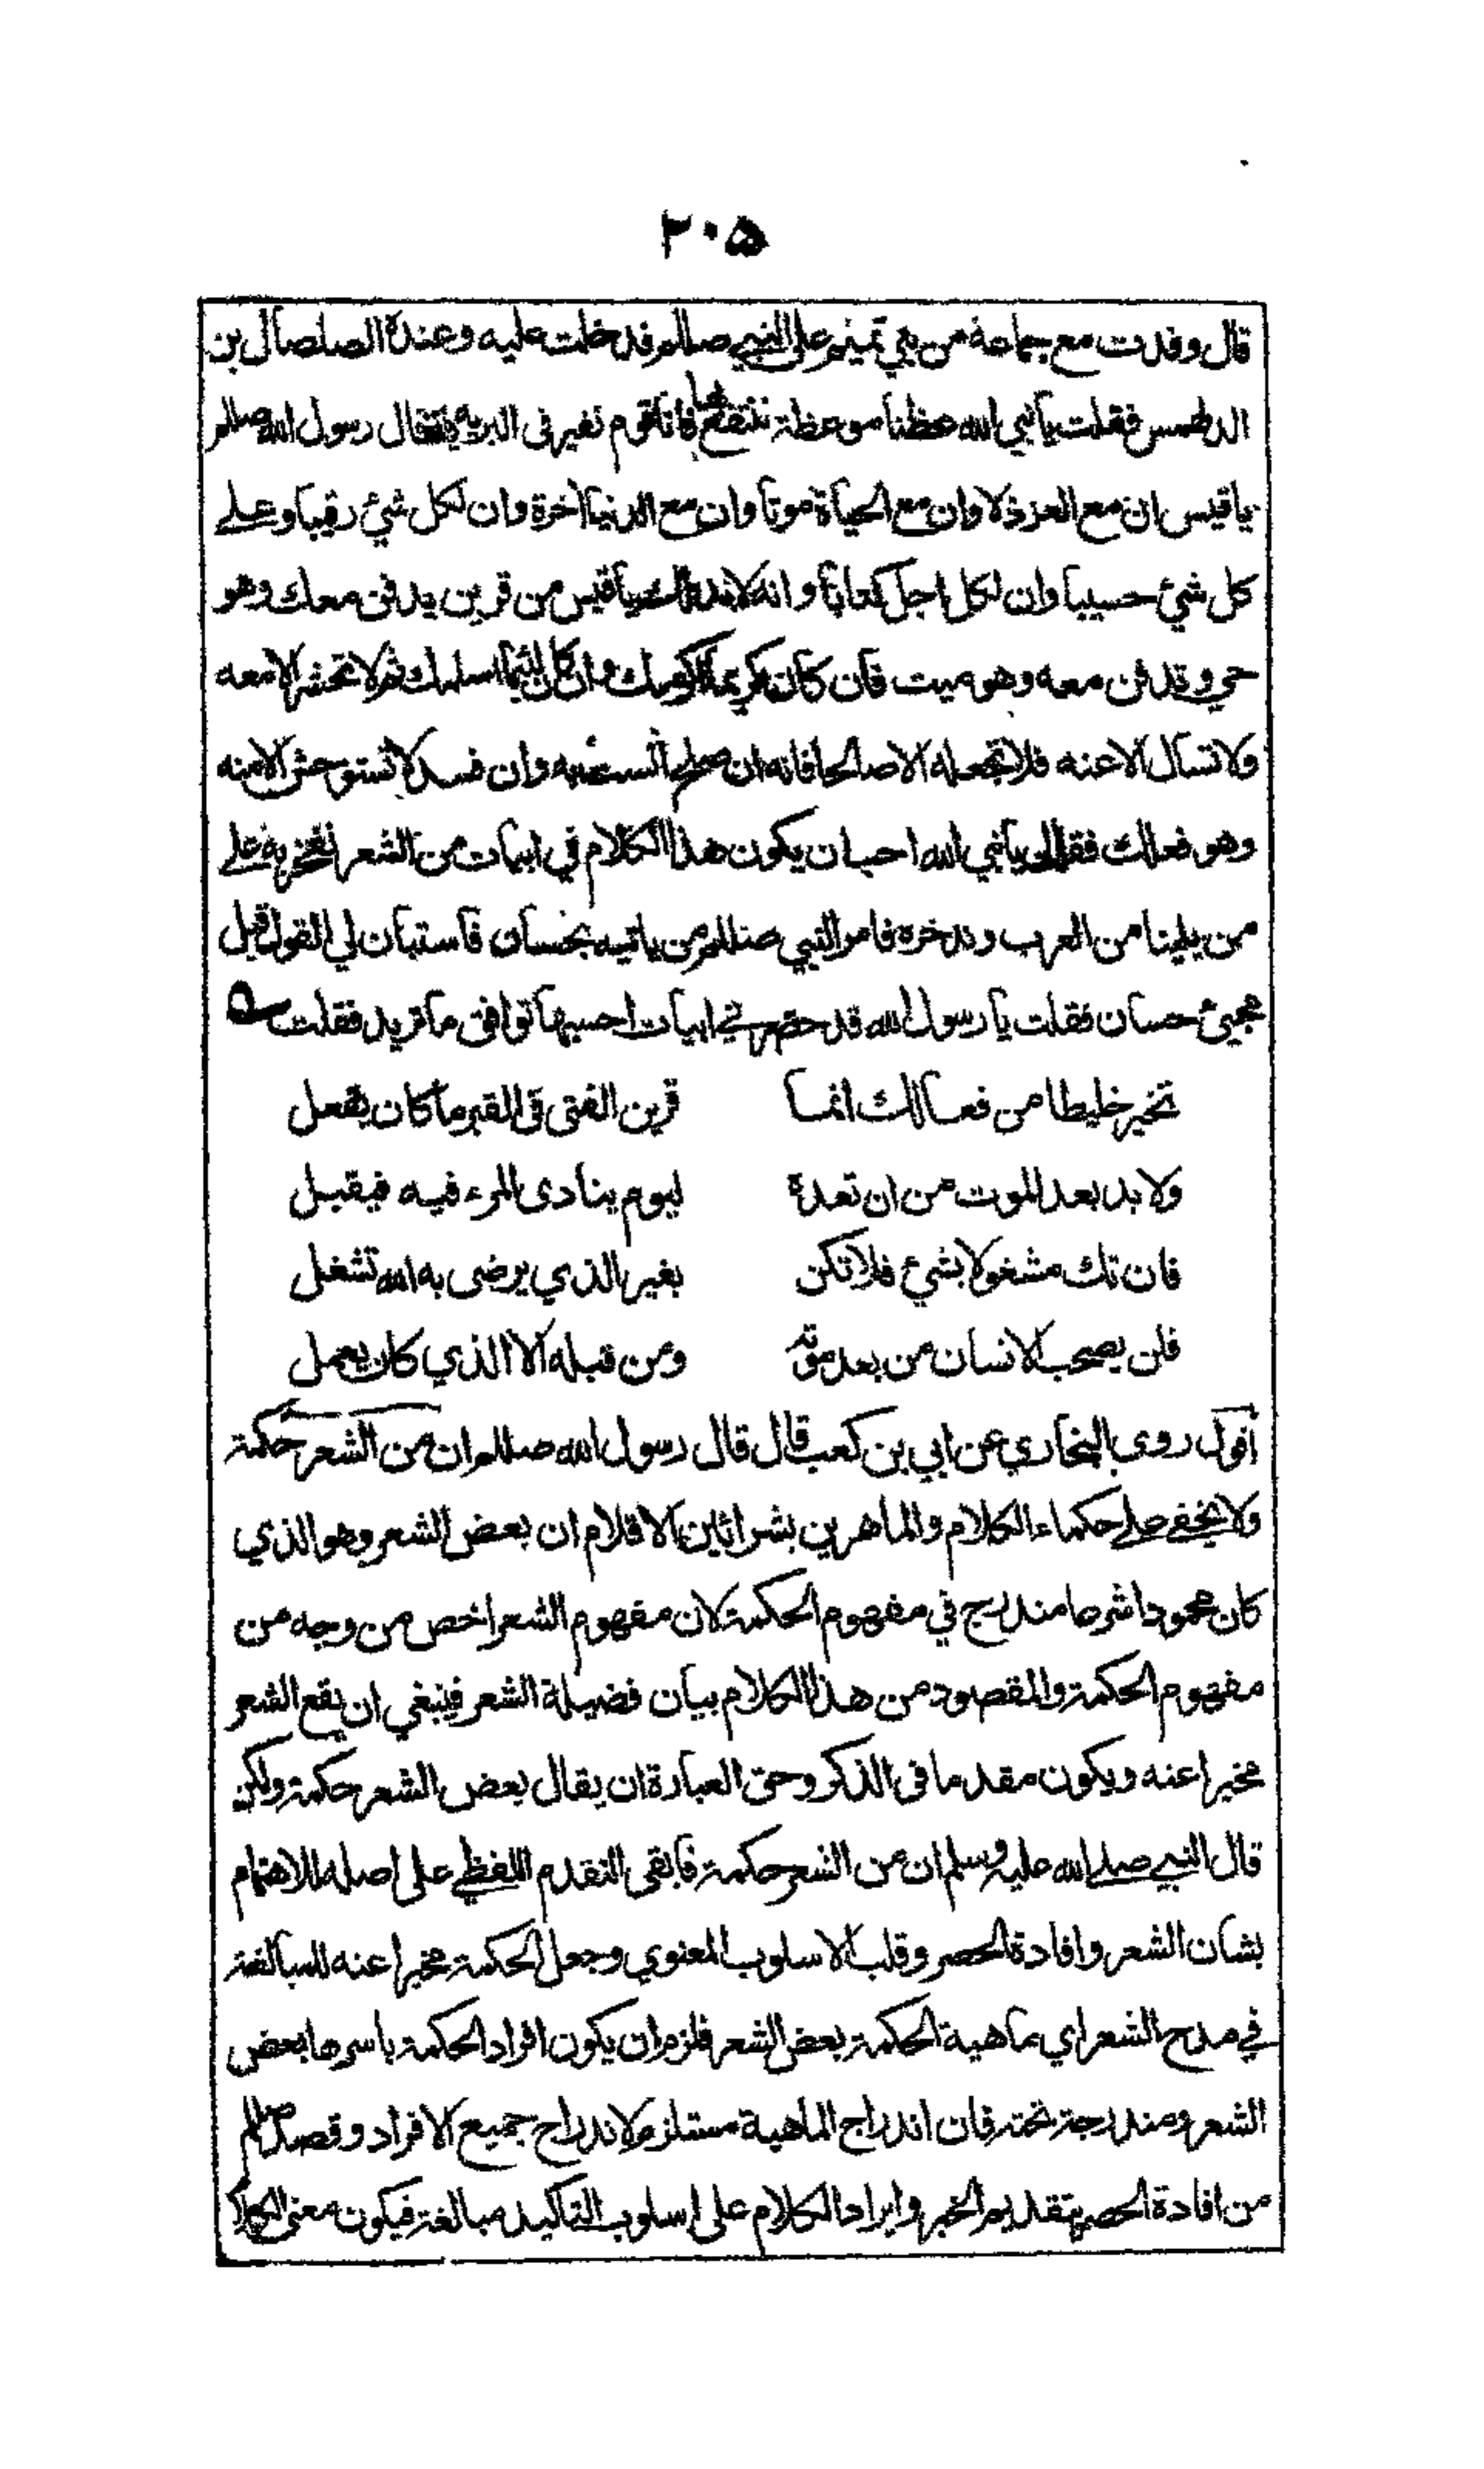 ٢٠٥
قال وفدت مع جماعة من بني تميم على النبي صللم فدخلت عليه وعنده الصلصال بن
الدلهمس فقلت يا نبي الله عظنا موعظة ننتفع بها فانا قوم نغير في البرية فقال رسول الله صللم
يا قيس ان مع العز ذلا وان مع الحياة موتا وان مع الدنيا اخرة وان لكل شئ رقيبا وعلى
كل شئ حسيبا وان لكل اجل كتابا وانه لا بد لك يا قيس من قرين يدفن معك وهو
حي وتدفن معه وهو ميت فان كان كريما اكرمك وان كان لئيما اسلمك ثم لا تحشر الا معه
ولا تسأل الا عنه فلا تجعله الا صالحا فانه ان صلح انست به وان فسد لا تستوحش الا منه
وهو فعالك فقال يا نبي الله احب ان يكون هذا الكلام في ابيات من الشعر نفخر به على
من يلينا من العرب وندخره فامر النبي صللم من ياتيه بحسان فاستبان لي القول قبل
مجيئ حسان فقلت يا رسول الله قد حضرني ابيات احسبها توافق ما تريد فقلت
تخير خليطا من فعالك انما قرين الفتى في القبر ما كان يفعل
ولا بد بعد الموت من ان تعده ليوم ينادى المرء فيه فيقبل
فان تك مشغولا بشئ فلا تكن بغير الذي يرضى به الله تشغل
فلن يصحب الانسان من بعد موته ومن قبله الا الذي كان يعمل
اقول روى البخاري عن ابي بن كعب قال قال رسول الله صللم ان من الشعر حكمة
ولا يخفى على حكماء الكلام والماهرين بشرائين الاقلام ان بعض الشعر وهو الذي
كان محمودا شرعا مندرج في مفهوم الحكمة لان مفهوم الشعر اخص من وجه من
مفهوم الحكمة والمقصود من هذا الكلام بيان فضيلة الشعر فينبغي ان يقع الشعر
مخبرا عنه ويكون مقدما في الذكر وحق العبارة ان يقال بعض الشعر حكمة ولكن
قال النبي صلى الله عليه وسلم ان من الشعر حكمة فابقى التقدم اللفظي على اصله للاهتمام
بشان الشعر وافادة الحصر وقلب الاسلوب المعنوي وجعل الحكمة مخبرا عنه للمبالغة
في مدح الشعر اي ماهية الحكمة بعض الشعر فلزم ان يكون افراد الحكمة باسرها بعض
الشعر ومندرجة تحته فان اندراج الماهية مستلزم لاندراج جميع الافراد وقصد صللم
من افادة الحصر بتقديم الخبر وايراد الكلام على اسلوب التاكيد مبالغة فيكون معنى الكلام